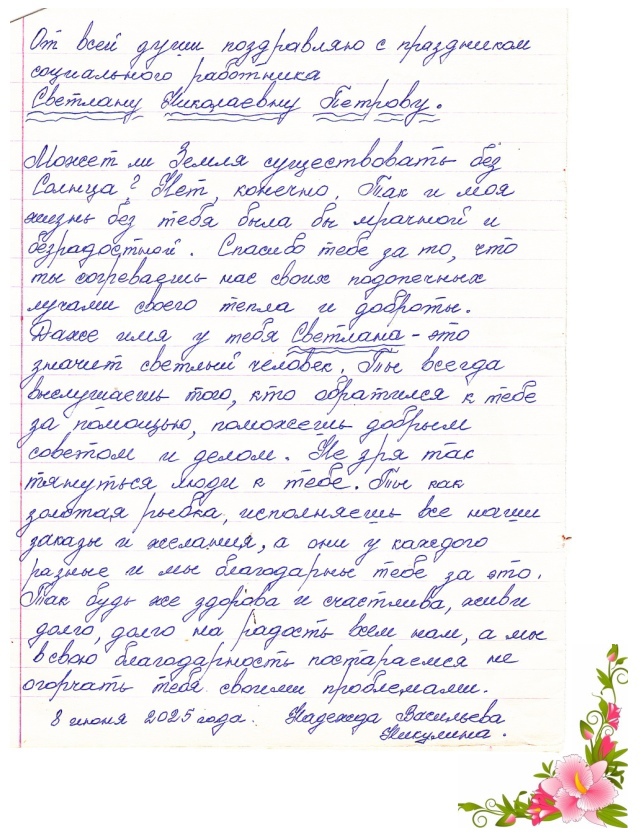 От всей души поздравляю с праздником
социального работника
Светлану Николаевну Петрову.
Может ли Земля существовать без
Солнца? Нет, конечно. Так и моя
жизнь без тебя была бы мрачной и
безрадостной. Спасибо тебе за то, что
ты согреваешь нас своих подопечных
лучами своего тепла и доброты.
Даже имя у тебя Светлана - это
значит светлый человек. Ты всегда
выслушаешь того, кто обратился к тебе
за помощью, поможешь добрым
советом и делом. Не зря так
тянуться люди к тебе. Ты как
золотая рыбка, исполняешь все наши
заказы и желания, а они у каждого
разные и мы благодарны тебе за это.
Так будь же здорова и счастлива, живи
долго, долго на радость всем нам, а мы
в свою благодарность постараемся не
огорчать тебя своими проблемами.
8 июня 2025 года. Надежда Васильева
Никулина.